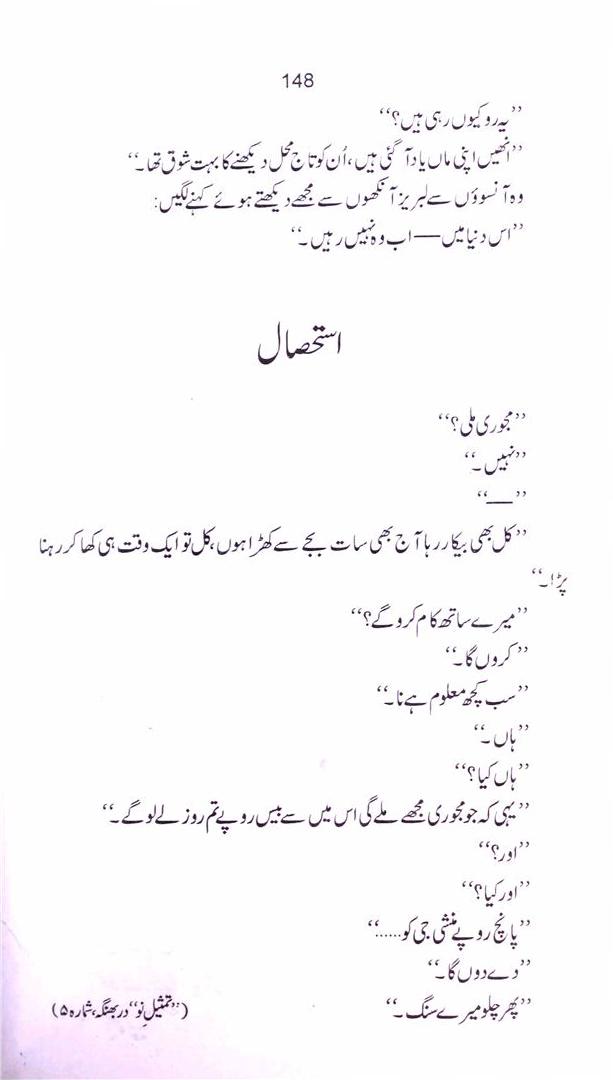 148
”یہ رو کیوں رہی ہیں؟“
”انھیں اپنی ماں یاد آ گئی ہیں، اُن کو تاج محل دیکھنے کا بہت شوق تھا۔“
وہ آنسوؤں سے لبریز آنکھوں سے مجھے دیکھتے ہوئے کہنے لگیں:
”اس دنیا میں — اب وہ نہیں رہیں۔“
استحصال
”مجوری ملی؟“
”نہیں۔“
”—“
”کل بھی بیکار رہا آج بھی سات بجے سے کھڑا ہوں، کل تو ایک وقت ہی کھا کر رہنا
پڑا۔“
”میرے ساتھ کام کرو گے؟“
”کروں گا۔“
”سب کچھ معلوم ہے نا۔“
”ہاں۔“
”ہاں کیا؟“
”یہی کہ جو مجوری مجھے ملے گی اس میں سے بیس روپے تم روز لے لو گے۔“
”اور؟“
”اور کیا؟“
”پانچ روپے منشی جی کو......“
”دے دوں گا۔“
”پھر چلو میرے سنگ۔“ (”تمثیلِ نو“ دربھنگہ، شمارہ ۵)